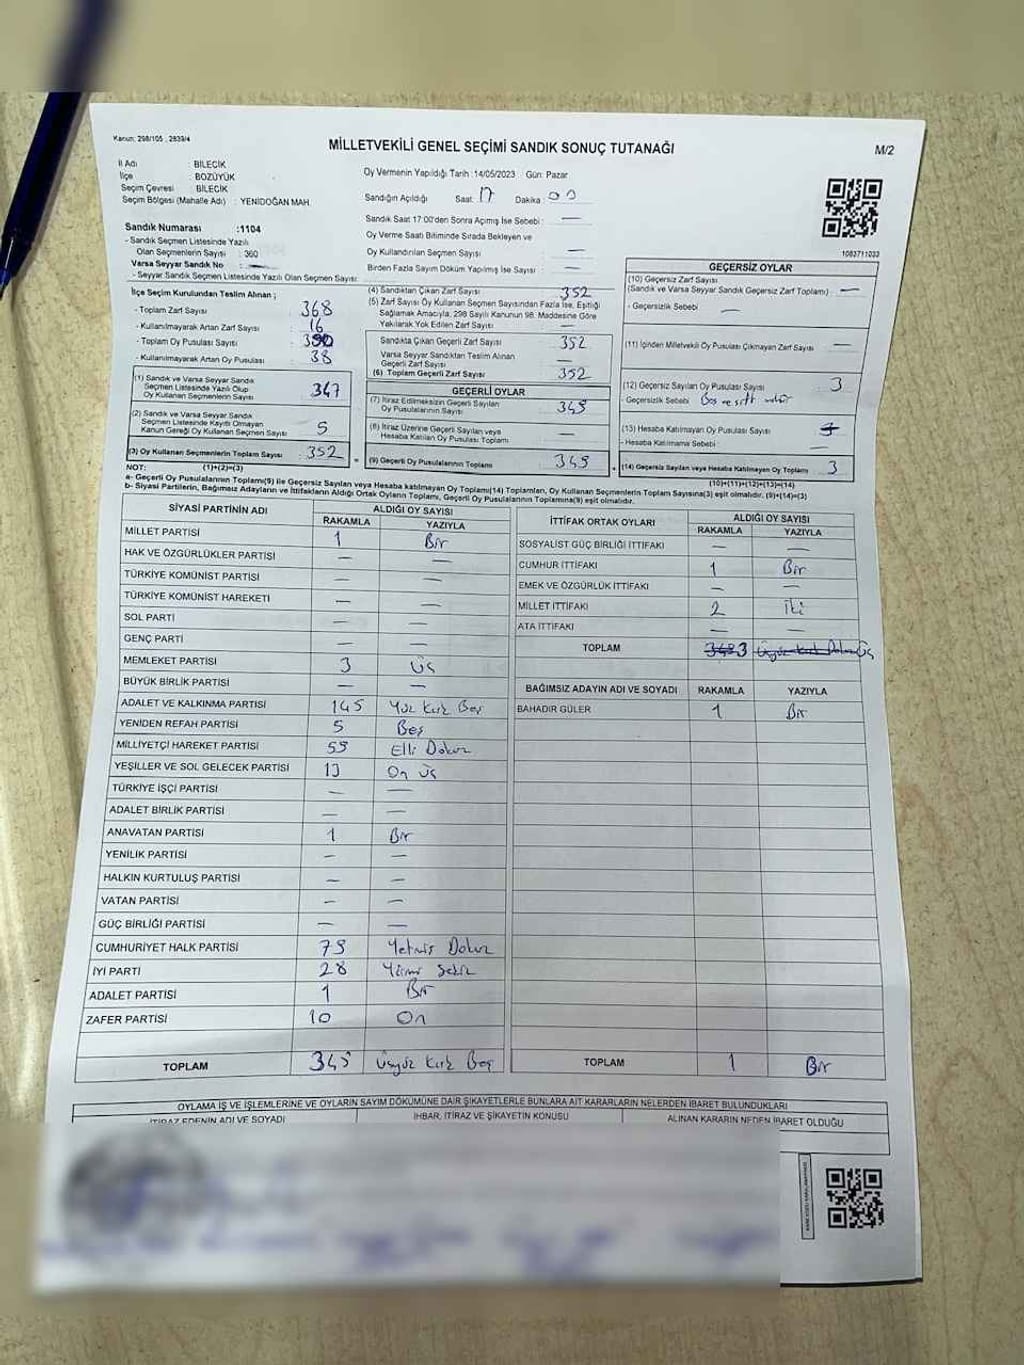 Kanun: 298/105 , 2839/4
MİLLETVEKİLİ GENEL SEÇİMİ SANDIK SONUÇ TUTANAĞI
M/2
İl Adı : BİLECİK
İlçe : BOZÜYÜK
Seçim Çevresi : BİLECİK
Seçim Bölgesi (Mahalle Adı) : YENİDOĞAN MAH.
Sandık Numarası :1104
- Sandık Seçmen Listesinde Yazılı
Olan Seçmenlerin Sayısı : 360
Varsa Seyyar Sandık No : —
- Seyyar Sandık Seçmen Listesinde Yazılı Olan Seçmen Sayısı:
Oy Vermenin Yapıldığı Tarih :14/05/2023 Gün: Pazar
Sandığın Açıldığı Saat: 17 Dakika : 00
Sandık Saat 17:00'den Sonra Açımış İse Sebebi : —
Oy Verme Saati Bitiminde Sırada Bekleyen ve
Oy Kullandırılan Seçmen Sayısı : —
Birden Fazla Sayım Döküm Yapılmış İse Sayısı : —
1083711033
İlçe Seçim Kurulundan Teslim Alınan ;
- Toplam Zarf Sayısı : 368
- Kullanılmayarak Artan Zarf Sayısı : 16
- Toplam Oy Pusulası Sayısı : 390
- Kullanılmayarak Artan Oy Pusulası : 38
(1) Sandık ve Varsa Seyyar Sandık
Seçmen Listesinde Yazılı Olup
Oy Kullanan Seçmenlerin Sayısı : 347
(2) Sandık ve Varsa Seyyar Sandık
Seçmen Listesinde Kayıtlı Olmayan
Kanun Gereği Oy Kullanan Seçmen Sayısı : 5
(3) Oy Kullanan Seçmenlerin Toplam Sayısı : 352
(1)+(2)=(3)
(4) Sandıktan Çıkan Zarf Sayısı : 352
(5) Zarf Sayısı Oy Kullanan Seçmen Sayısından Fazla İse, Eşitliği
Sağlamak Amacıyla, 298 Sayılı Kanunun 98. Maddesine Göre
Yakılarak Yok Edilen Zarf Sayısı : —
Sandıkta Çıkan Geçerli Zarf Sayısı : 352
Varsa Seyyar Sandıktan Teslim Alınan
Geçerli Zarf Sayısı : —
(6) Toplam Geçerli Zarf Sayısı : 352
GEÇERLİ OYLAR
(7) İtiraz Edilmeksizin Geçerli Sayılan
Oy Pusulalarının Sayısı : 349
(8) İtiraz Üzerine Geçerli Sayılan veya
Hesaba Katılan Oy Pusulası Toplamı : —
(9) Geçerli Oy Pusulalarının Toplamı : 349
GEÇERSİZ OYLAR
(10) Geçersiz Zarf Sayısı
(Sandık ve Varsa Seyyar Sandık Geçersiz Zarf Toplamı) : —
- Geçersizlik Sebebi : —
(11) İçinden Milletvekili Oy Pusulası Çıkmayan Zarf Sayısı : —
(12) Geçersiz Sayılan Oy Pusulası Sayısı : 3
- Geçersizlik Sebebi : Boş ve
(13) Hesaba Katılmayan Oy Pusulası Sayısı :
- Hesaba Katılmama Sebebi : —
(14) Geçersiz Sayılan veya Hesaba Katılmayan Oy Toplamı : 3
(10)+(11)+(12)+(13)=(14)
NOT:
a- Geçerli Oy Pusulaları Toplamı(9) ile Geçersiz Sayılan veya Hesaba katılmayan Oy Toplamı(14) Toplamları, Oy Kullanan Seçmenlerin Toplam Sayısına(3) eşit olmalıdır. (9)+(14)=(3)
b- Siyasi Partilerin, Bağımsız Adayların ve İttifakların Aldığı Ortak Oyların Toplamı, Geçerli Oy Pusulalarının Toplamına(9) eşit olmalıdır.
SİYASİ PARTİNİN ADI ALDIĞI OY SAYISI
RAKAMLA YAZIYLA
MİLLET PARTİSİ 1 Bir
HAK VE ÖZGÜRLÜKLER PARTİSİ — —
TÜRKİYE KOMÜNİST PARTİSİ — —
TÜRKİYE KOMÜNİST HAREKETİ — —
SOL PARTİ — —
GENÇ PARTİ — —
MEMLEKET PARTİSİ 3 Üç
BÜYÜK BİRLİK PARTİSİ — —
ADALET VE KALKINMA PARTİSİ 145 Yüz Kırk Beş
YENİDEN REFAH PARTİSİ 5 Beş
MİLLİYETÇİ HAREKET PARTİSİ 59 Elli Dokuz
YEŞİLLER VE SOL GELECEK PARTİSİ 13 On Üç
TÜRKİYE İŞÇİ PARTİSİ — —
ADALET BİRLİK PARTİSİ — —
ANAVATAN PARTİSİ 1 Bir
YENİLİK PARTİSİ — —
HALKIN KURTULUŞ PARTİSİ — —
VATAN PARTİSİ — —
GÜÇ BİRLİĞİ PARTİSİ — —
CUMHURİYET HALK PARTİSİ 79 Yetmiş Dokuz
İYİ PARTİ 28 Yirmi Sekiz
ADALET PARTİSİ 1 Bir
ZAFER PARTİSİ 10 On
TOPLAM 345 Üçyüz Kırk Beş
İTTİFAK ORTAK OYLARI ALDIĞI OY SAYISI
RAKAMLA YAZIYLA
SOSYALİST GÜÇ BİRLİĞİ İTTİFAKI — —
CUMHUR İTTİFAKI 1 Bir
EMEK VE ÖZGÜRLÜK İTTİFAKI — —
MİLLET İTTİFAKI 2 İki
ATA İTTİFAKI — —
TOPLAM 3 Üç
BAĞIMSIZ ADAYIN ADI VE SOYADI RAKAMLA YAZIYLA
BAHADIR GÜLER 1 Bir
TOPLAM 1 Bir
OYLAMA İŞ VE İŞLEMLERİNE VE OYLARIN SAYIM DÖKÜMÜNE DAİR ŞİKAYETLERLE BUNLARA AİT KARARLARIN NELERDEN İBARET BULUNDUKLARI
İTİRAZ EDENİN ADI VE SOYADI İHBAR, İTİRAZ VE ŞİKAYETİN KONUSU ALINAN KARARIN NEDEN İBARET OLDUĞU